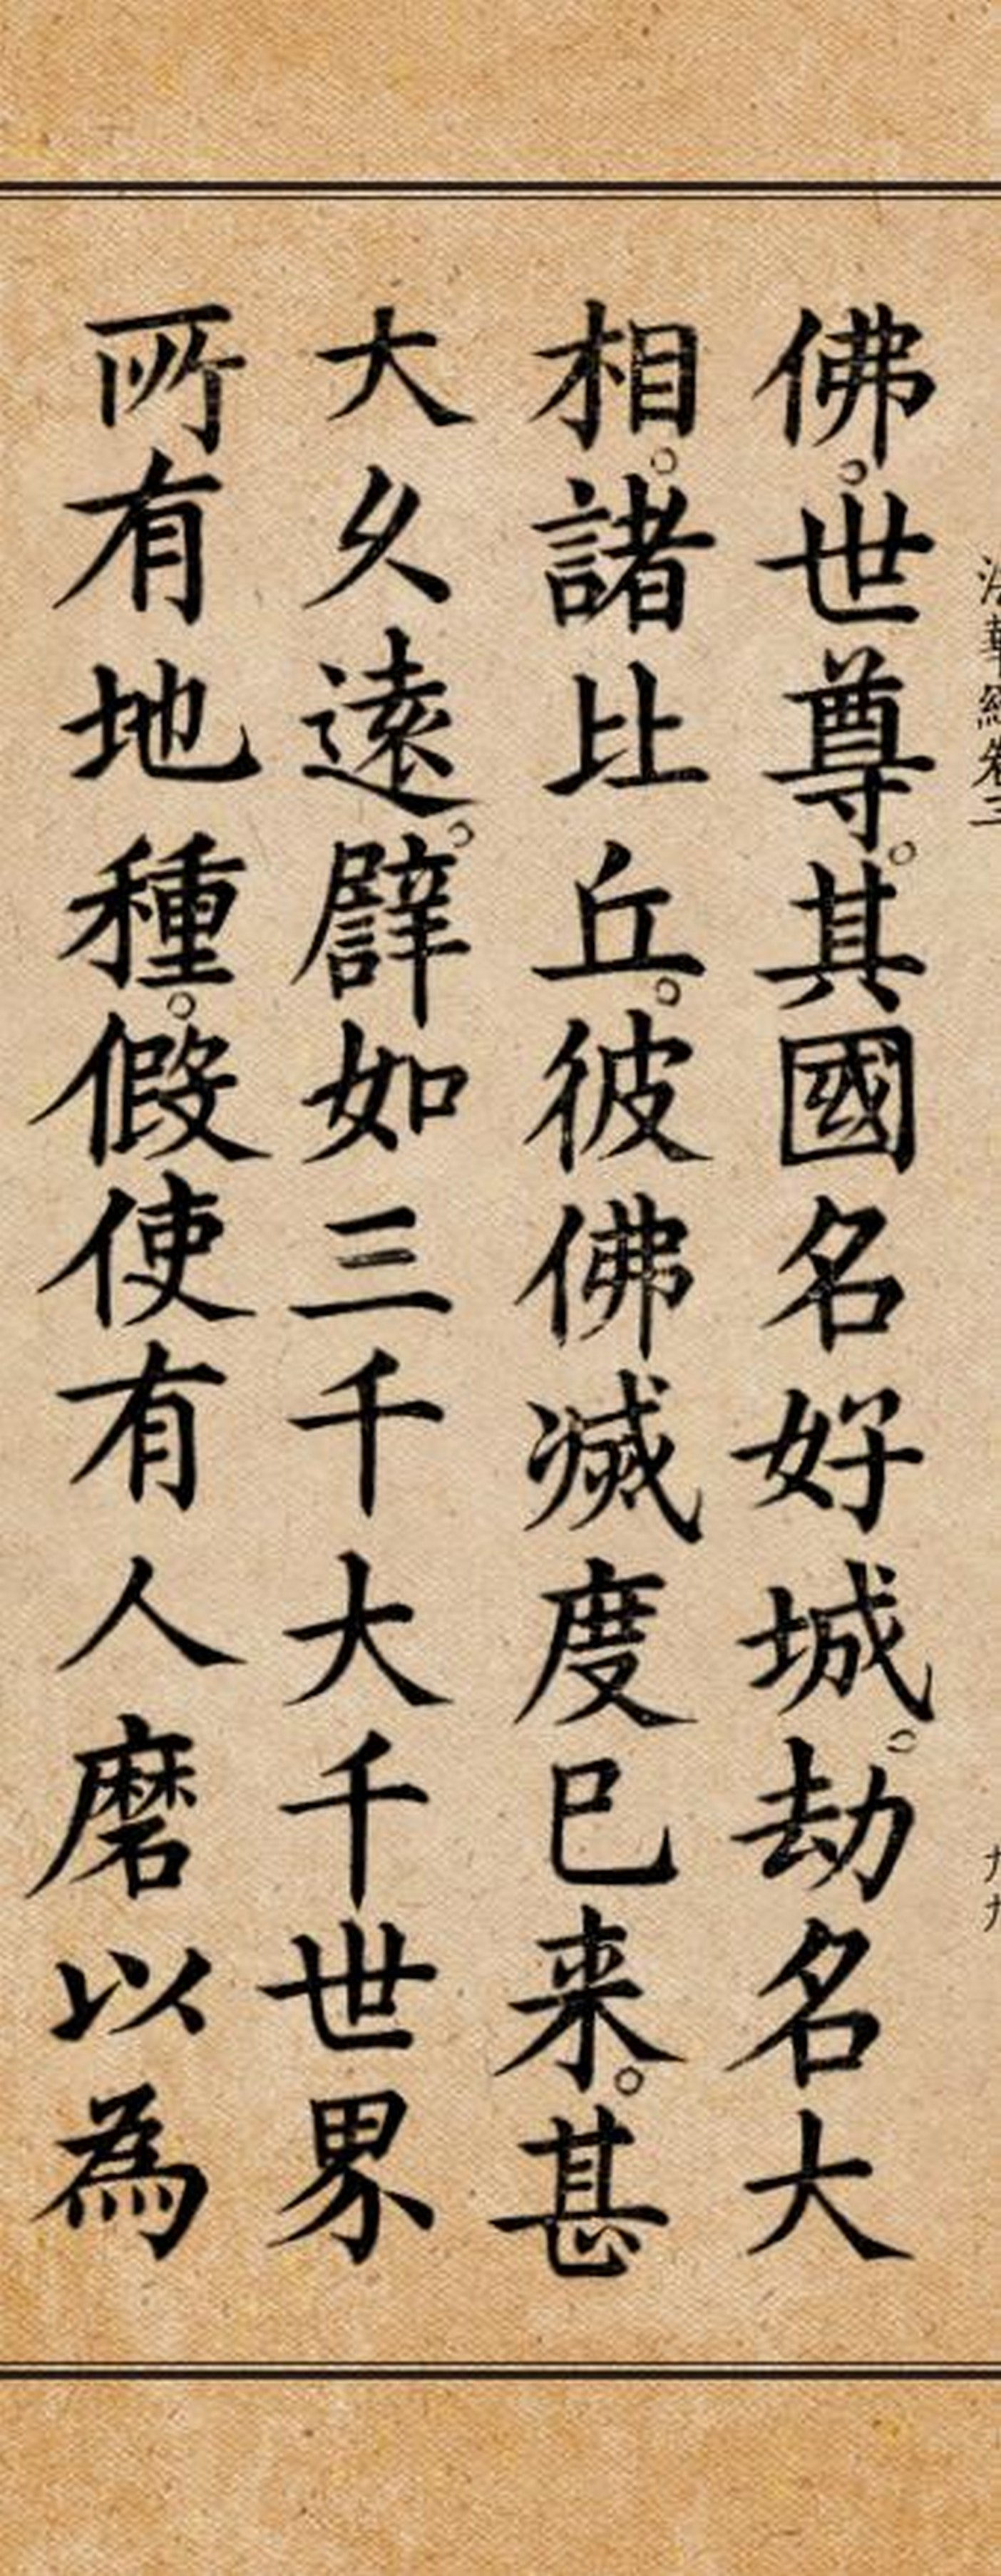 法華經卷三 九九
佛。世尊。其國名好城。劫名大
相。諸比丘。彼佛滅度已来。甚
大久遠。譬如三千大千世界
所有地種。假使有人磨以為